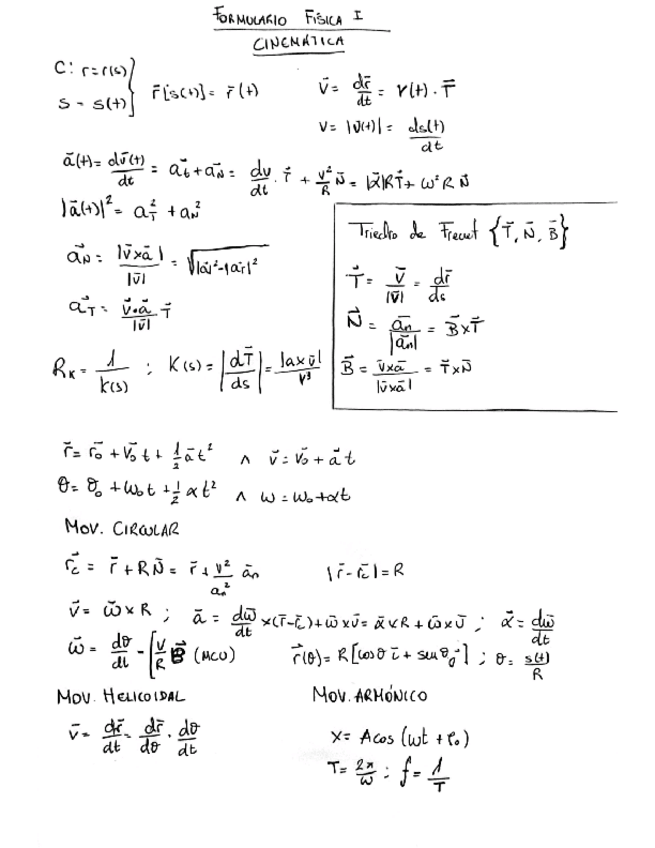 FORMULARIO FÍSICA I
CINEMÁTICA
C: r=r(s)
s = s(t)} r̄[s(t)] = r̄(t)
v̄ = dr̄/dt = v(t) · T̄
v = |v(t)| = ds(t)/dt
ā(t) = dv̄(t)/dt = a⃗t + a⃗N = dv/dt · T⃗ + v²/R N̄ = |α⃗|R T⃗ + ω² R N̄
|ā(t)|² = a²T + a²N
a⃗N = |v̄xā|/|v̄| = √|a|²-|aT|²
a⃗T = v̄·ā/|v̄| T̄
Rk = 1/k(s) ; K(s) = |dT̄/ds| = |a x v̄|/v³
Triedro de Frenet {T⃗, N̄, B̄}
T⃗ = v̄/|v̄| = dr̄/ds
N⃗ = ān/|ān| = B̄xT̄
B⃗ = v̄xā/|v̄xā| = T̄xN̄
r̄ = r⃗o + v⃗o t + 1/2 ā t² ∧ v̄ = v⃗o + a⃗ t
θ = θo + ωo t + 1/2 α t² ∧ ω = ωo + αt
MOV. CIRCULAR
r⃗c = r̄ + R N̄ = r̄ + v²/an² ān |r̄ - r⃗c| = R
v̄ = ω̄ x R ; ā = dω̄/dt x(r̄-r⃗c) + ω̄ x v̄ = ᾱ x R + ω̄ x v̄ ; α⃗ = dω̄/dt
ω̄ = dθ/dt = [v/R B⃗ (MCU) r⃗(θ) = R[cosθ i⃗ + senθ j⃗] ; θ = s(t)/R
MOV. HELICOIDAL
v̄ = dr̄/dt = dr̄/dθ · dθ/dt
MOV. ARMÓNICO
x = A cos (ωt + φo)
T = 2π/ω ; f = 1/T